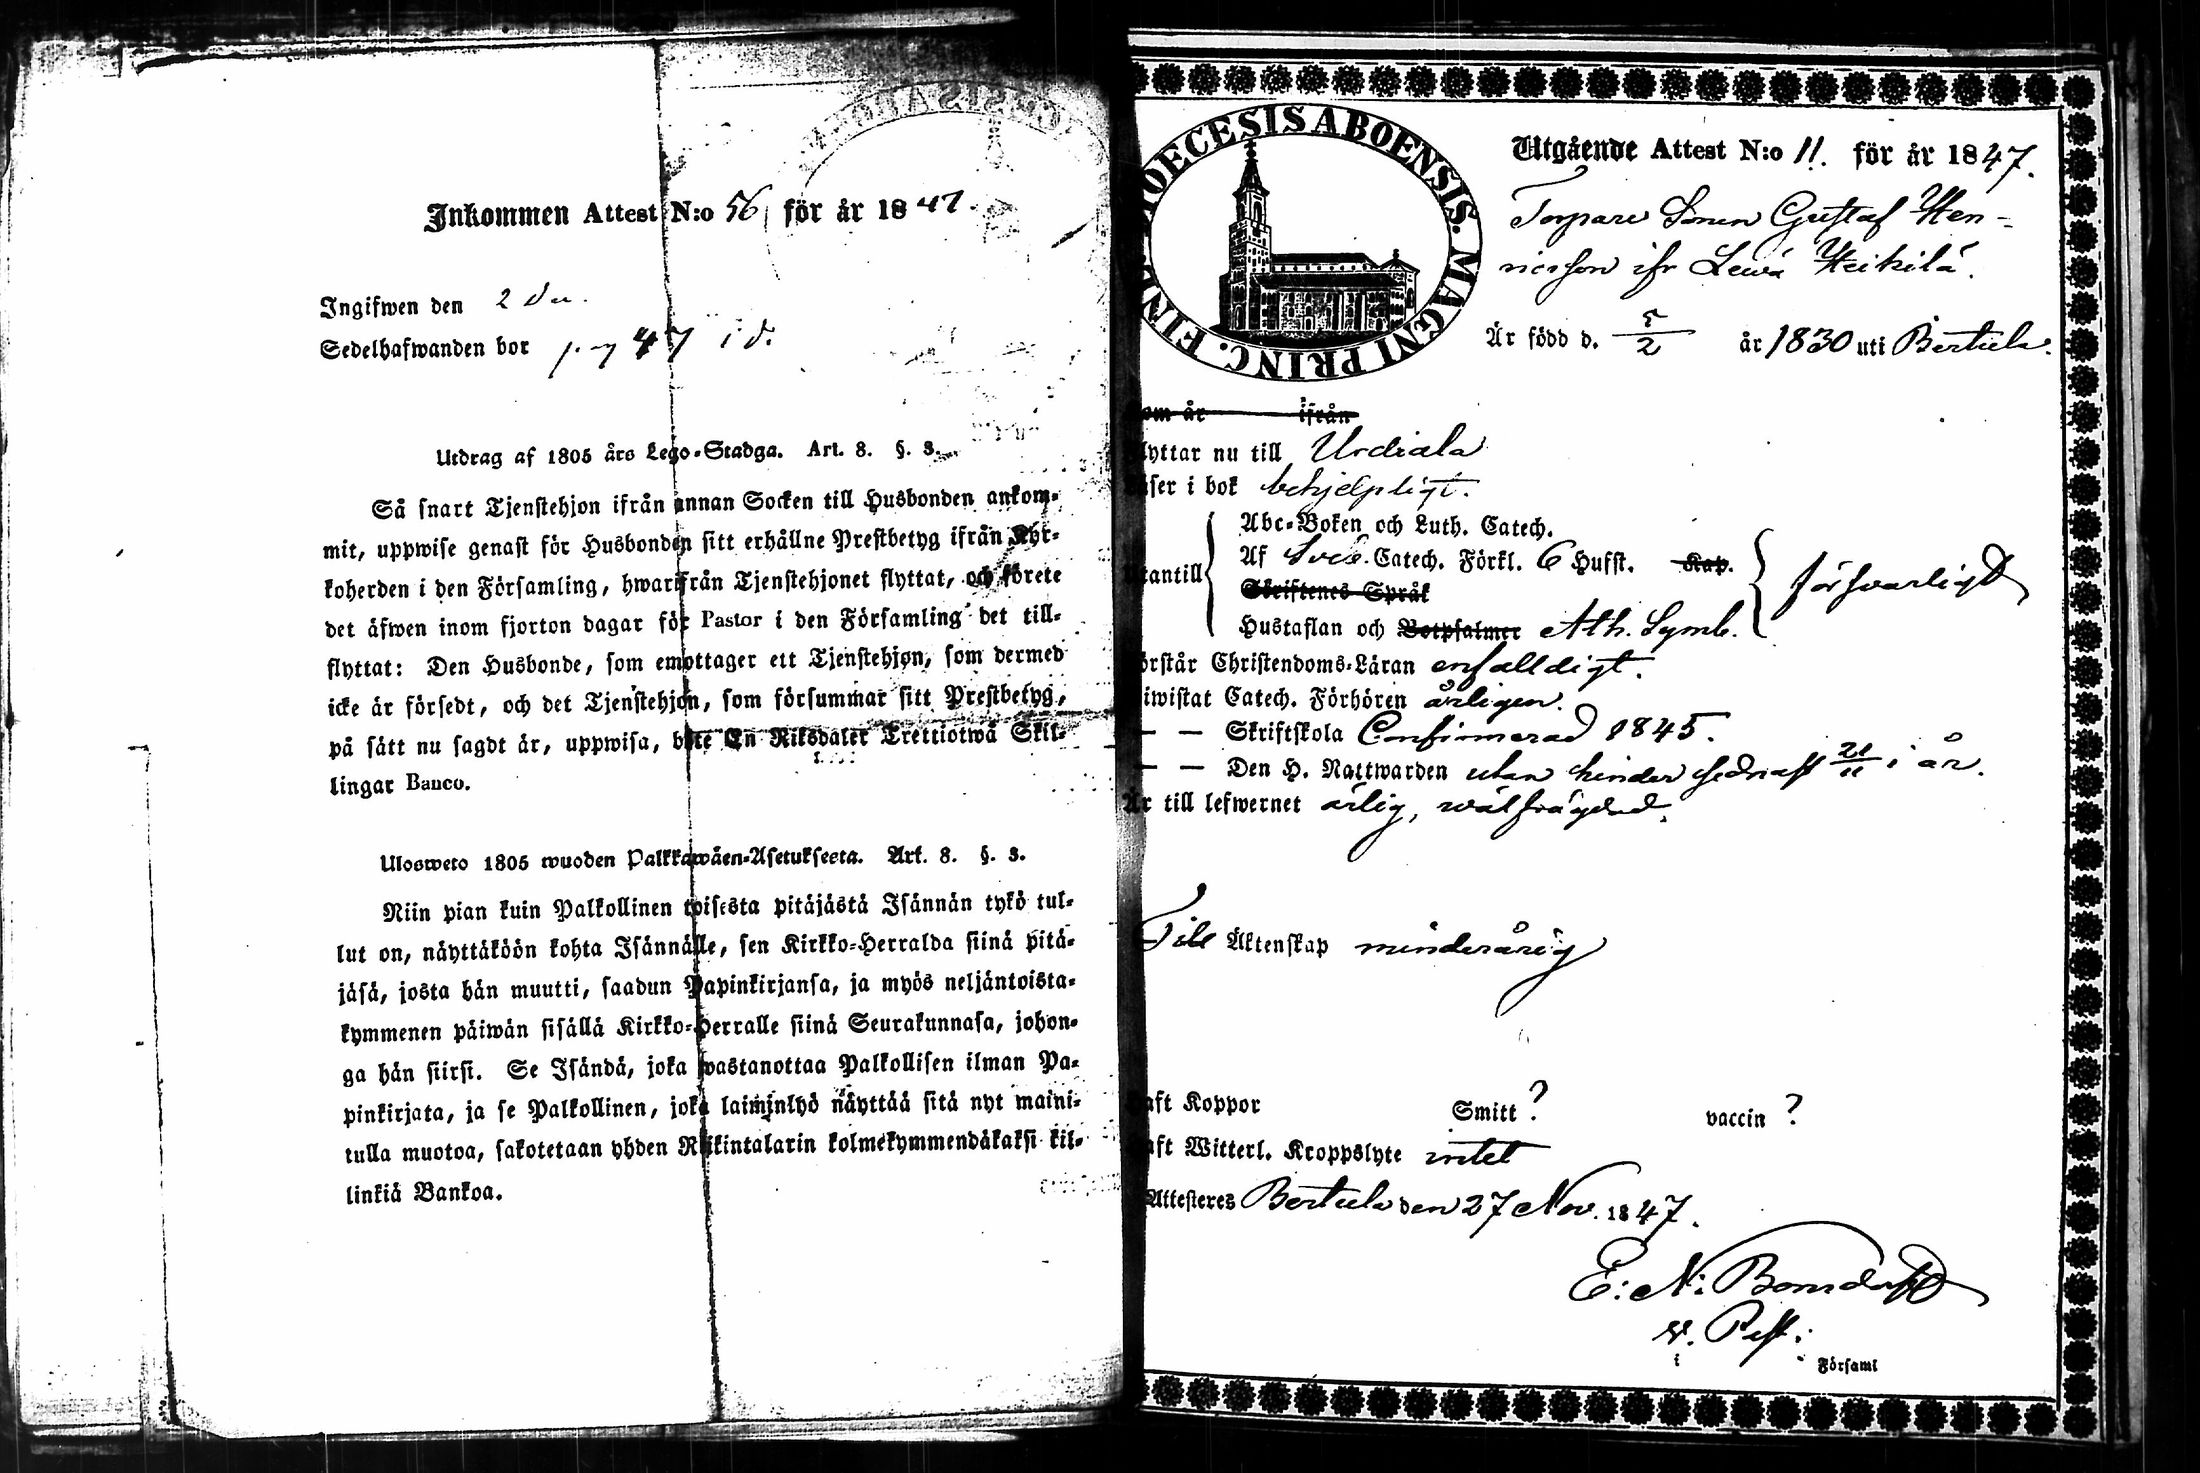 Inkommen Attest N:o 56 för år 1847.
Ingifwen den 2 Du.
Sedelhafwanden bor 47 i d.
Utdrag af 1805 års Lego-Stadga. Art. 8. §. 3.
Så snart Tjenstehjon ifrån annan Socken till Husbonden ankom-
mit, uppwise genast för Husbonden sitt erhållne Prestbetyg ifrån Kyr-
koherden i den Församling, hwarifrån Tjenstehjonet flyttat, och förete
det äfwen inom fjorton dagar för Pastor i den Församling det till-
flyttat: Den Husbonde, som emottager ett Tjenstehjon, som dermed
icke är försedt, och det Tjenstehjon, som försummar sitt Prestbetyg,
på sätt nu sagdt är, uppwisa, böte En Riksdaler Trettiotwå Skil-
lingar Banco.
Ulosweto 1805 wuoden Palkkawäen-Asetuksesta. Art. 8. §. 3.
Niin pian kuin Palkollinen toisesta pitäjästä Isännän tykö tul-
lut on, näyttäköön kohta Isännälle, sen Kirkko-Herralda siinä pitä-
jäsä, josta hän muutti, saadun Papinkirjansa, ja myös neljäntoista-
kymmenen päiwän sisällä Kirkko-Herralle siinä Seurakunnasa, johon-
ga hän siirsi. Se Isändä, joka wastanottaa Palkollisen ilman Pa-
pinkirjata, ja se Palkollinen, joka laiminlyö näyttää sitä nyt maini-
tulla muotoa, sakotetaan yhden Riikintalarin kolmekymmendäkaksi kil-
linkiä Bankoa.
DIOECESIS ABOENSIS. MAGNI PRINC. FINL.
Utgående Attest N:o 11. för år 1847.
Torpare Sonen Gustaf Hen-
ricsson ifr Lewä Heikilä.
Är född d. 5/2 år 1830 uti Bertula.
om år ifrån
lyttar nu till Urdiala
äser i bok behjelpligt.
Abc-Boken och Luth. Catech.
Af Sveb. Catech. Förkl. 6 Hufst. Kap.
tantill Skriftenes Språk försvarligt
Hustaflan och Botpsalmer Ath. Symb.
örstår Christendoms-Läran enfalldigt.
iwistat Catech. Förhören årligen.
— — Skriftskola Confirmerad 1845.
— — Den H. Nattwarden utan hinder sednast 21/11 i år.
Är till lefwernet ärlig, wälfrägdad.
Till Äktenskap minderårig
aft Koppor Smitt ? vaccin ?
aft Witterl. Kroppslyte intet
Attesteres Bertula den 27 Nov. 1847.
E: N: Bonsdorff
v. Past:
i Församl